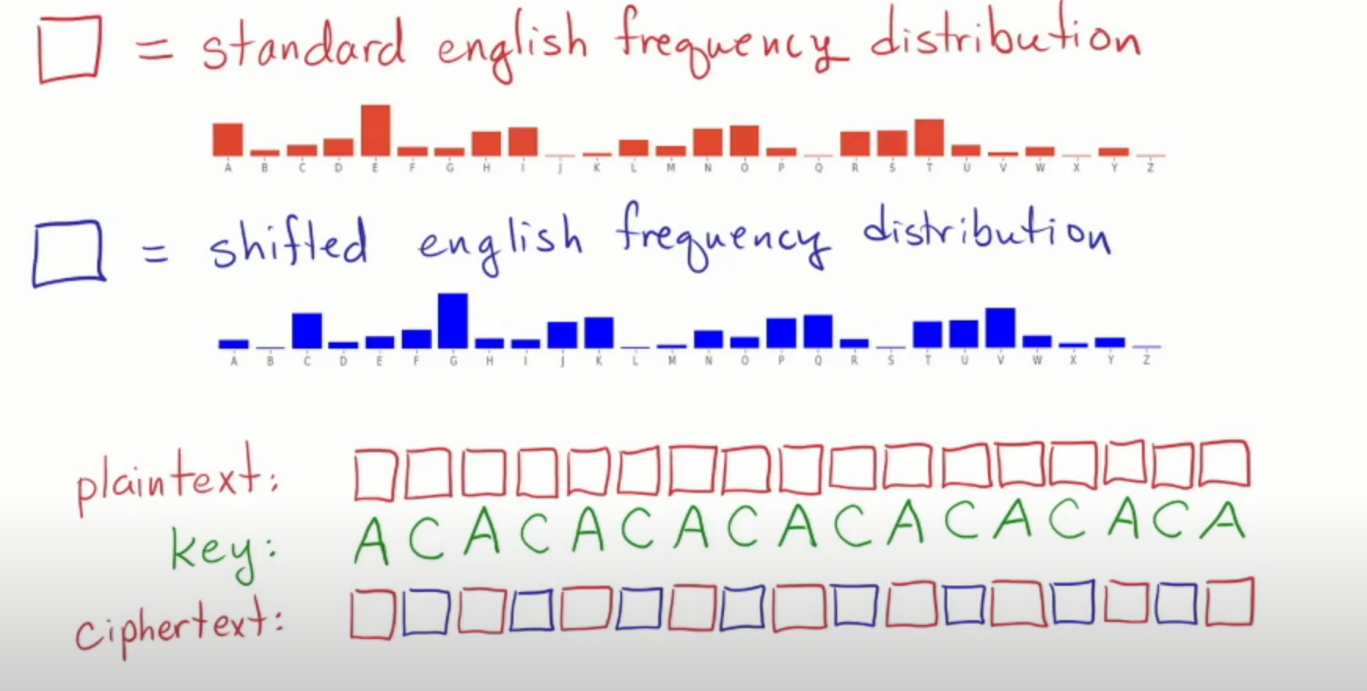 = standard english frequency distribution
A B C D E F G H I J K L M N O P Q R S T U V W X Y Z
= shifted english frequency distribution
A B C D E F G H I J K L M N O P Q R S T U V W X Y Z
plaintext:
key: A C A C A C A C A C A C A C A C A
ciphertext: